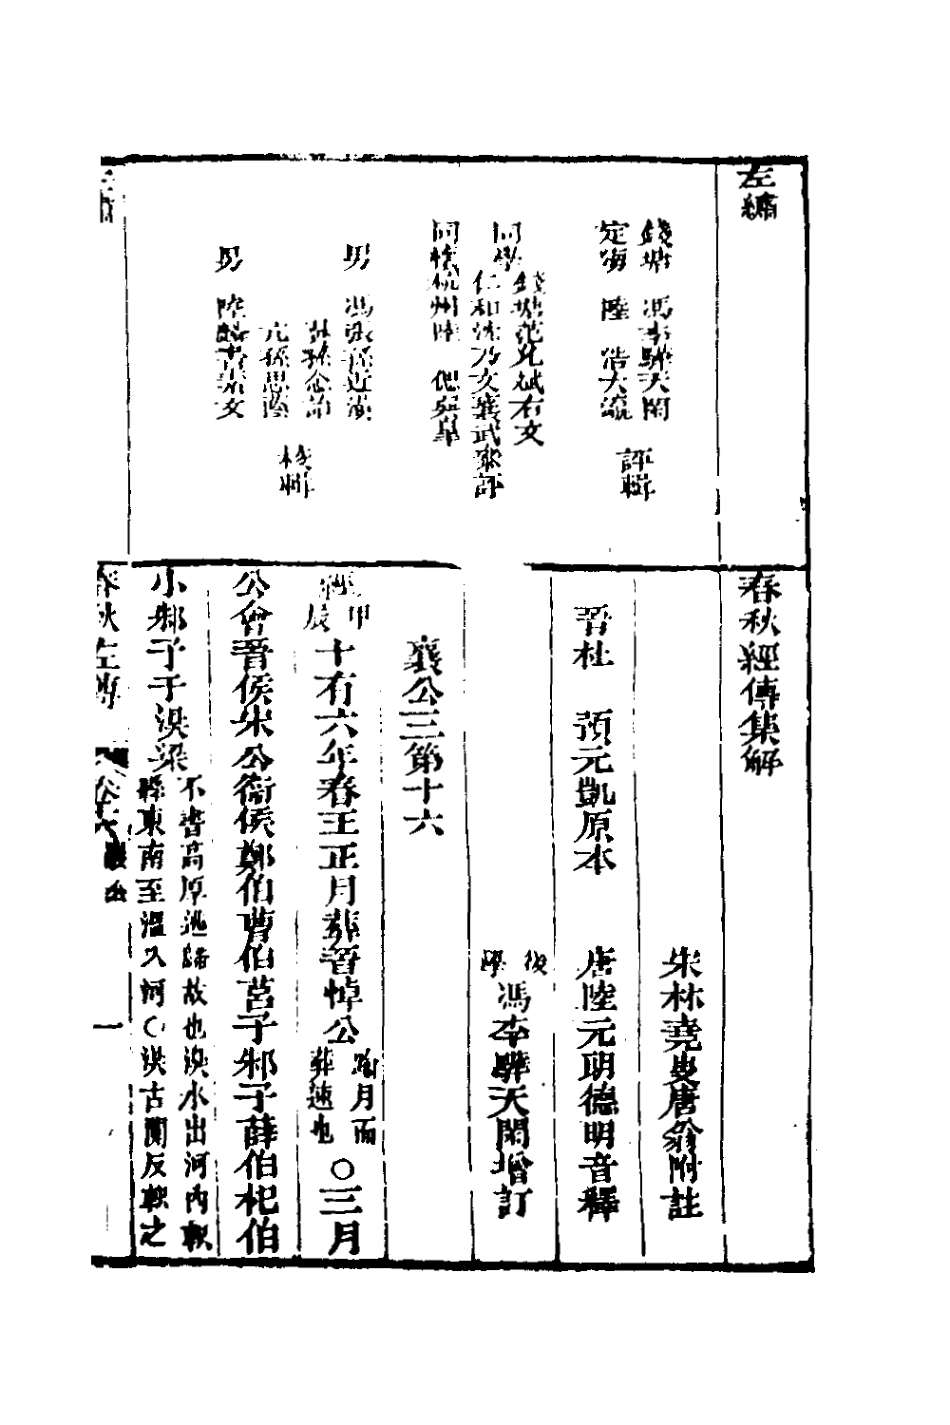 左繡
錢塘 馮李驊天閑
定海 陸浩大瀛
評輯
同學
錢塘范允斌右文
仁和沈乃文襄武
參評
同懷杭州陸偲與皐
男 馮張孫近潢
孫念詒
元孫思蔭
男 陸 書素文
校輯
春秋經傳集解
朱林堯叟唐翁附註
晉杜 預元凱原本 唐陸元朗德明音釋
後學馮李驊天閑增訂
襄公三第十六
經甲辰十有六年春王正月葬晉悼公踰月而葬速也○三月
公會晉侯宋公衞侯鄭伯曹伯莒子邾子薛伯杞伯
小邾子于湨梁不書高厚逃歸故也湨水出河內軹
縣東南至溫入河○湨古闃反軹之
春秋左傳 卷十六 襄公 一